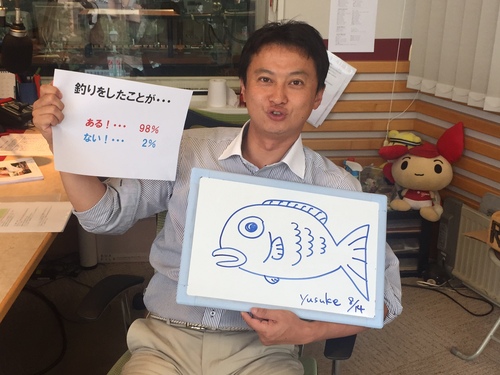 釣りをしたことが・・・
ある!・・・ 98%
ない!・・・ 2%
yusuke 8/14